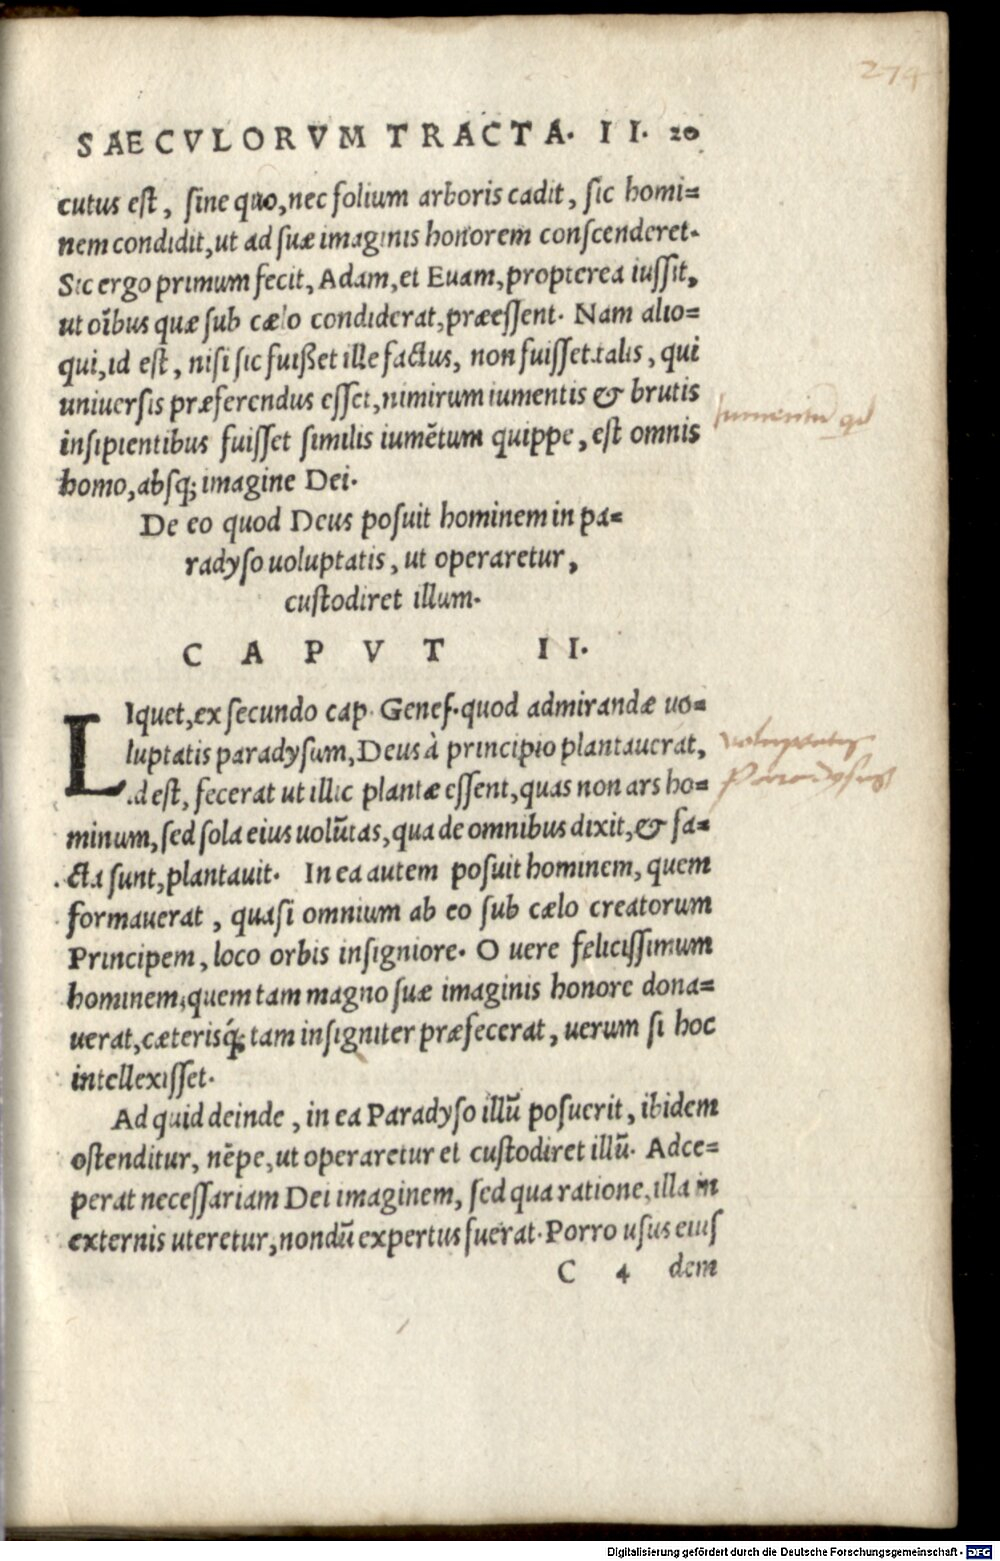 274
SAECVLORVM TRACTA. II. 20
cutus est, sine quo, nec folium arboris cadit, sic homi=
nem condidit, ut ad suæ imaginis honorem conscenderet.
Sic ergo primum fecit, Adam, et Euam, propterea iussit,
ut oîbus quæ sub cælo condiderat, præessent. Nam alio=
qui, id est, nisi sic fuißet ille factus, non fuisset talis, qui
uniuersis præferendus esset, nimirum iumentis & brutis
insipientibus fuisset similis iumẽtum quippe, est omnis
homo, absq; imagine Dei.
De eo quod Deus posuit hominem in pa=
radyso uoluptatis, ut operaretur,
custodiret illum.
CAPVT II.
LIquet, ex secundo cap. Genes. quod admirandæ uo=
luptatis paradysum, Deus à principio plantauerat,
.d est, fecerat ut illic plantæ essent, quas non ars ho=
minum, sed sola eius uolũtas, qua de omnibus dixit, & fa=
cta sunt, plantauit. In ea autem posuit hominem, quem
formauerat, quasi omnium ab eo sub cælo creatorum
Principem, loco orbis insigniore. O uere felicissimum
hominem, quem tam magno suæ imaginis honore dona=
uerat, cæterisq́; tam insigniter præfecerat, uerum si hoc
intellexisset.
Ad quid deinde, in ea Paradyso illũ posuerit, ibidem
ostenditur, nẽpe, ut operaretur et custodiret illũ. Adce=
perat necessariam Dei imaginem, sed qua ratione, illa in
externis uteretur, nondũ expertus fuerat. Porro usus eius
C 4 dem
voluptatis
Paradysus
Digitalisierung gefördert durch die Deutsche Forschungsgemeinschaft - DFG